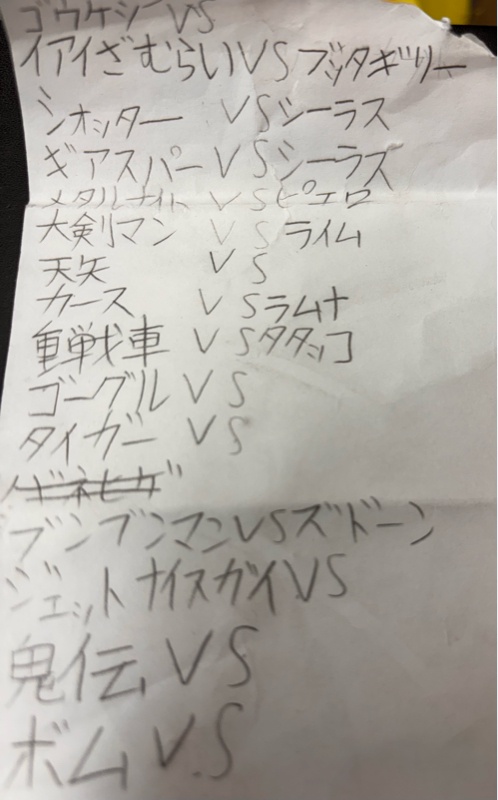 ゴウケシ VS
イアイざむらいVSブッタギリー
シオッター VSシーラス
ギアスパーVSシーラズ
メタルナイト VSピエロ
大剣リマン VSライム
天矢 VS
カース VSラムナ
重戦車 VSタタッコ
ゴーグル VS
タイガー VS
ブンブンマンVSズドーン
ジェットナイスガイVS
鬼伝 VS
ボム V.S